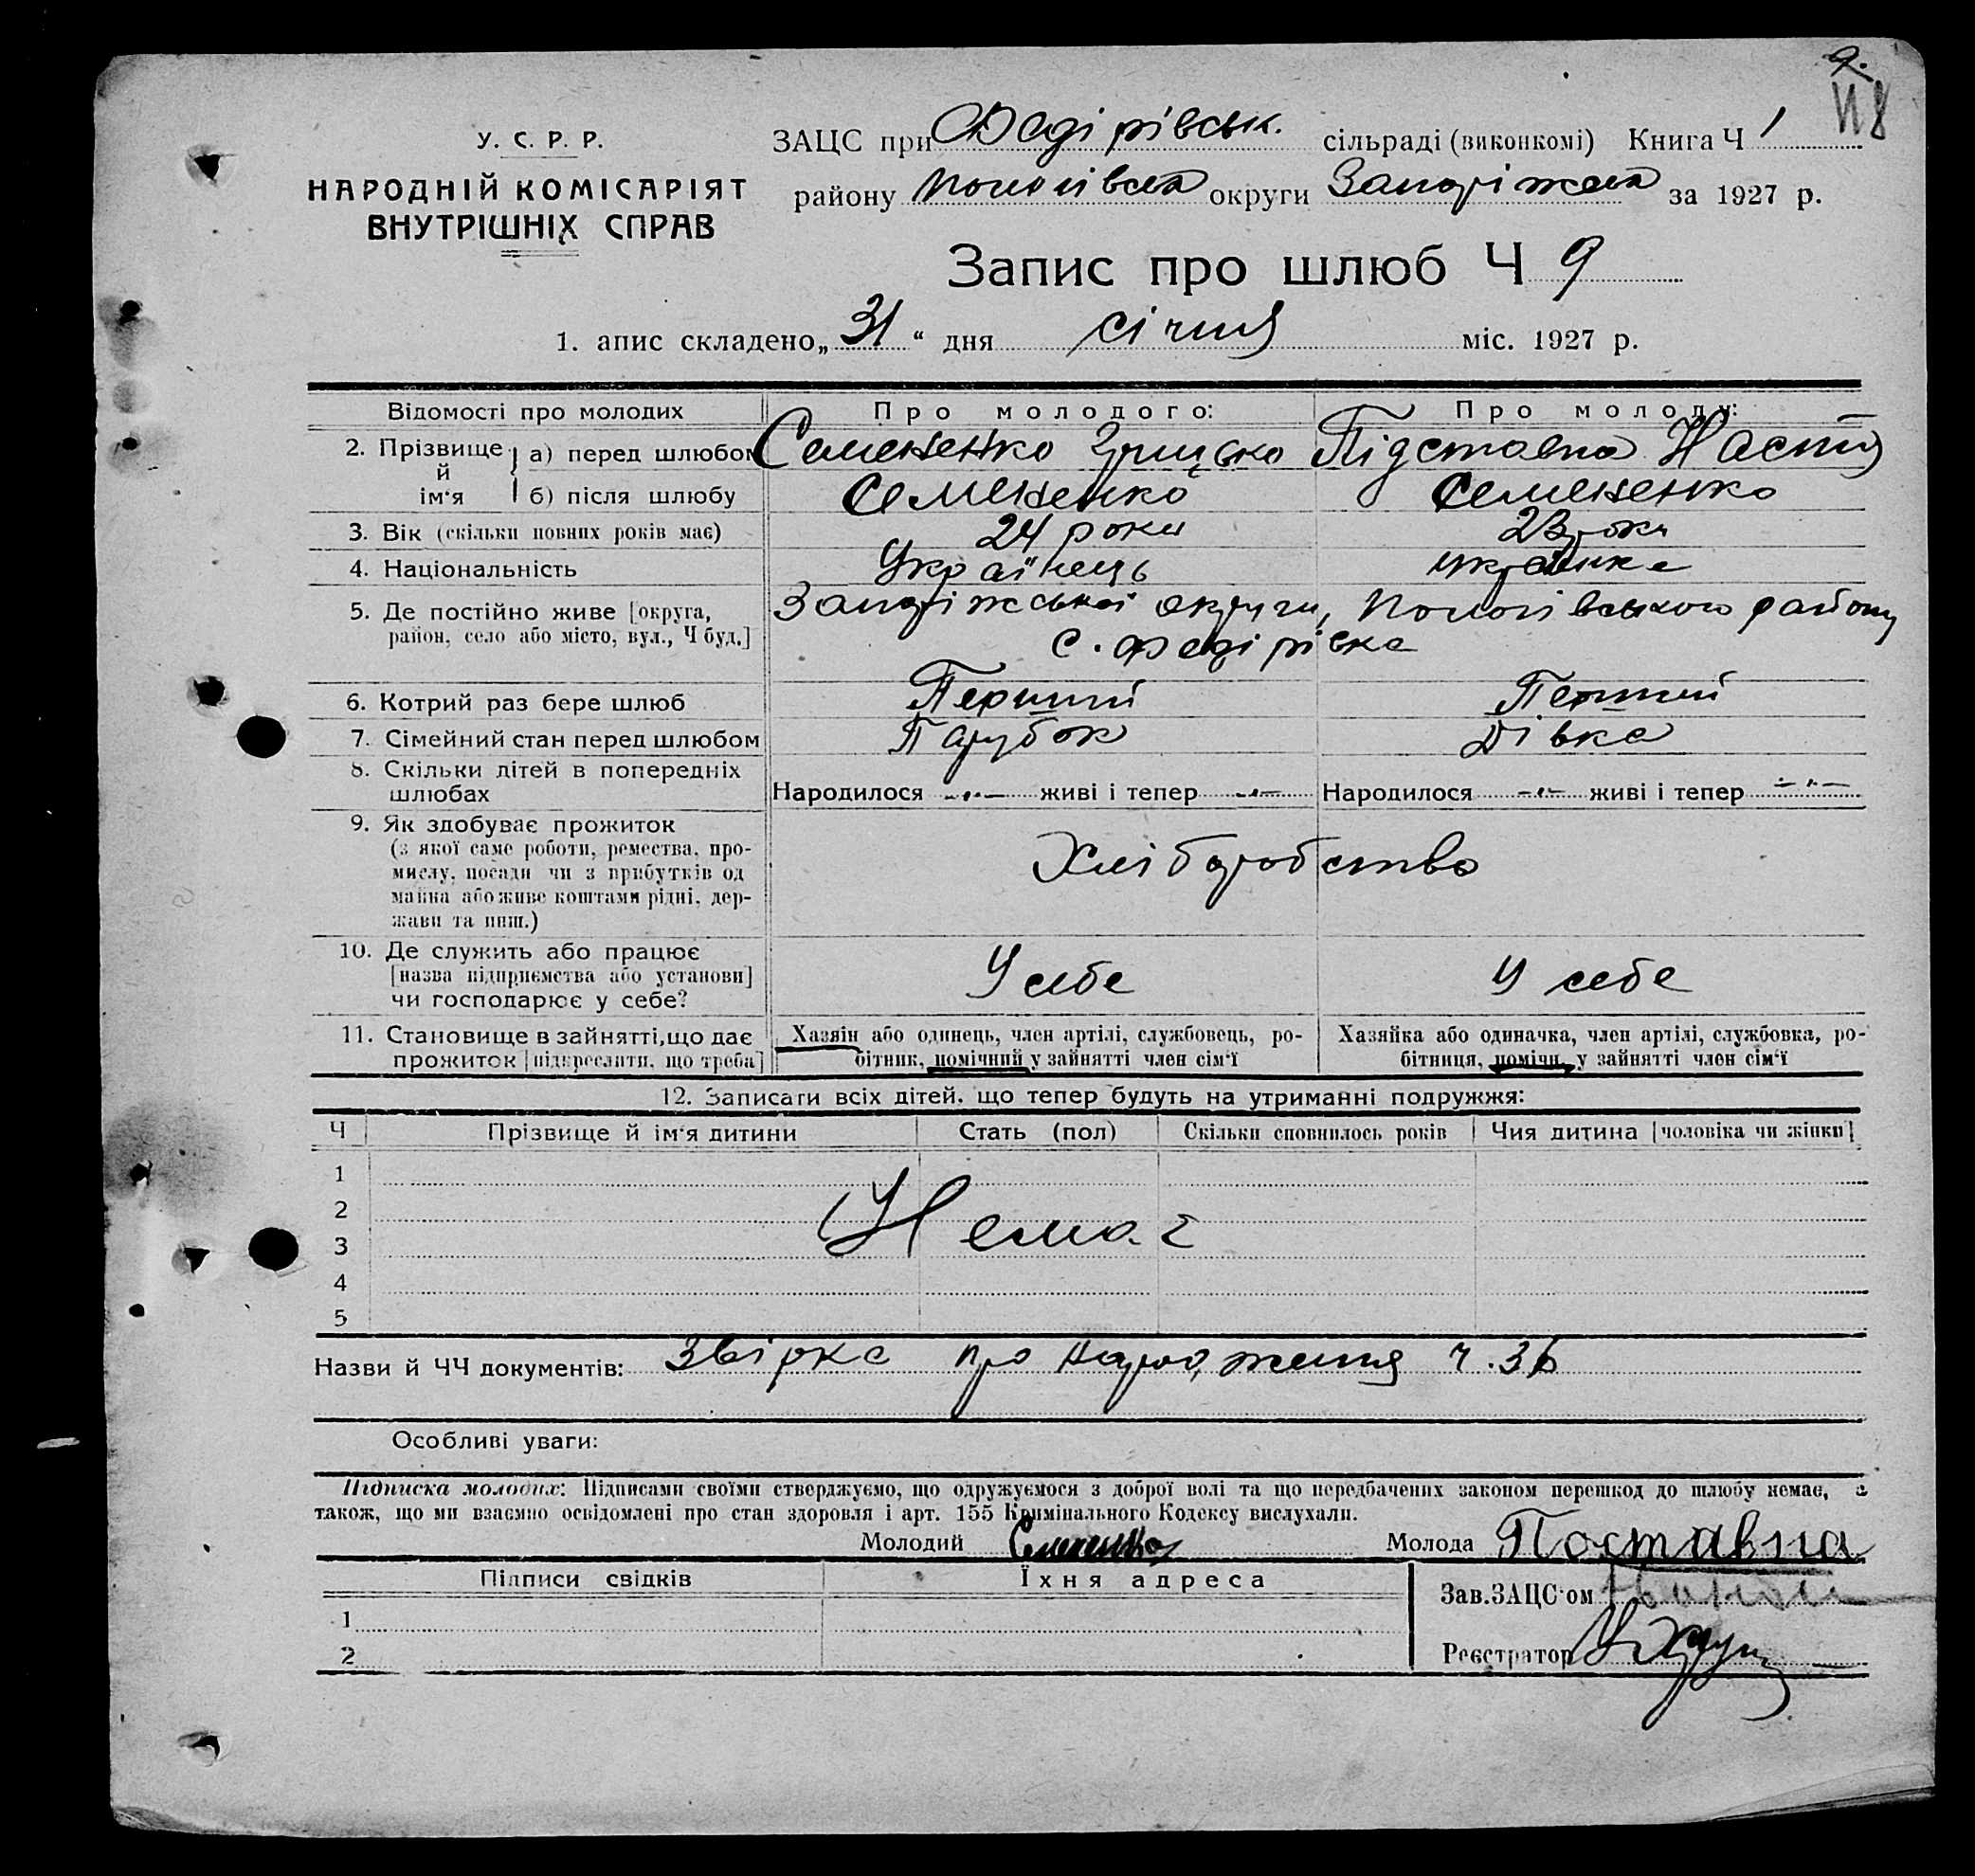 9.
У. С. Р. Р.
НАРОДНІЙ КОМІСАРІЯТ
ВНУТРІШНІХ СПРАВ
ЗАЦС при Федірівськ. сільраді (виконкомі) Книга Ч 1
району Пологівськ округи Запоріжськ за 1927 р.
Запис про шлюб Ч 9
1. апис складено „ 31 “ дня січня міс. 1927 р.
Відомості про молодих Про молодого: Про молоду:
2. Прізвище й ім‘я а) перед шлюбом Семененко Грицько Підставна Настя
б) після шлюбу Семененко Семененко
3. Вік (скільки повних років має) 24 роки 23 роки
4. Національність Українець українка
5. Де постійно живе [округа, Запоріжської округи, Пологівського району
район, село або місто, вул., Ч буд.] с. Федірівка
6. Котрий раз бере шлюб Перший Перший
7. Сімейний стан перед шлюбом Парубок Дівка
8. Скільки дітей в попередніх
шлюбах Народилося -„- живі і тепер -„- Народилося -„- живі і тепер -„-
9. Як здобуває прожиток
(з якої саме роботи, ремества, про-
мислу, посади чи з прибутків од
майна або живе коштами рідні, дер-
жави та инш.)
Хліборобство
10. Де служить або працює
[назва підприємства або установи]
чи господарює у себе?
У себе У себе
11. Становище в зайнятті, що дає
прожиток [підкреслити, що треба]
Хазяїн або одинець, член артілі, службовець, ро-
бітник, помічний у зайнятті член сім‘ї
Хазяйка або одиначка, член артілі, службовка, ро-
бітниця, помічн. у зайнятті член сім‘ї
12. Записати всіх дітей, що тепер будуть на утриманні подружжя:
Ч Прізвище й ім‘я дитини Стать (пол) Скільки сповнилось років Чия дитина [чоловіка чи жінки]
1
2
Немає
3
4
5
Назви й ЧЧ документів: Звірка про народження ч. 36
Особливі уваги:
Підписка молодих: Підписами своїми стверджуємо, що одружуємося з доброї волі та що передбачених законом перешкод до шлюбу немає, а
також, що ми взаємно освідомлені про стан здоровля і арт. 155 Кримінального Кодексу вислухали.
Молодий Семененко Молода Поставна
Підписи свідків Їхня адреса
Зав. ЗАЦС‘ом
1
Реєстратор
2